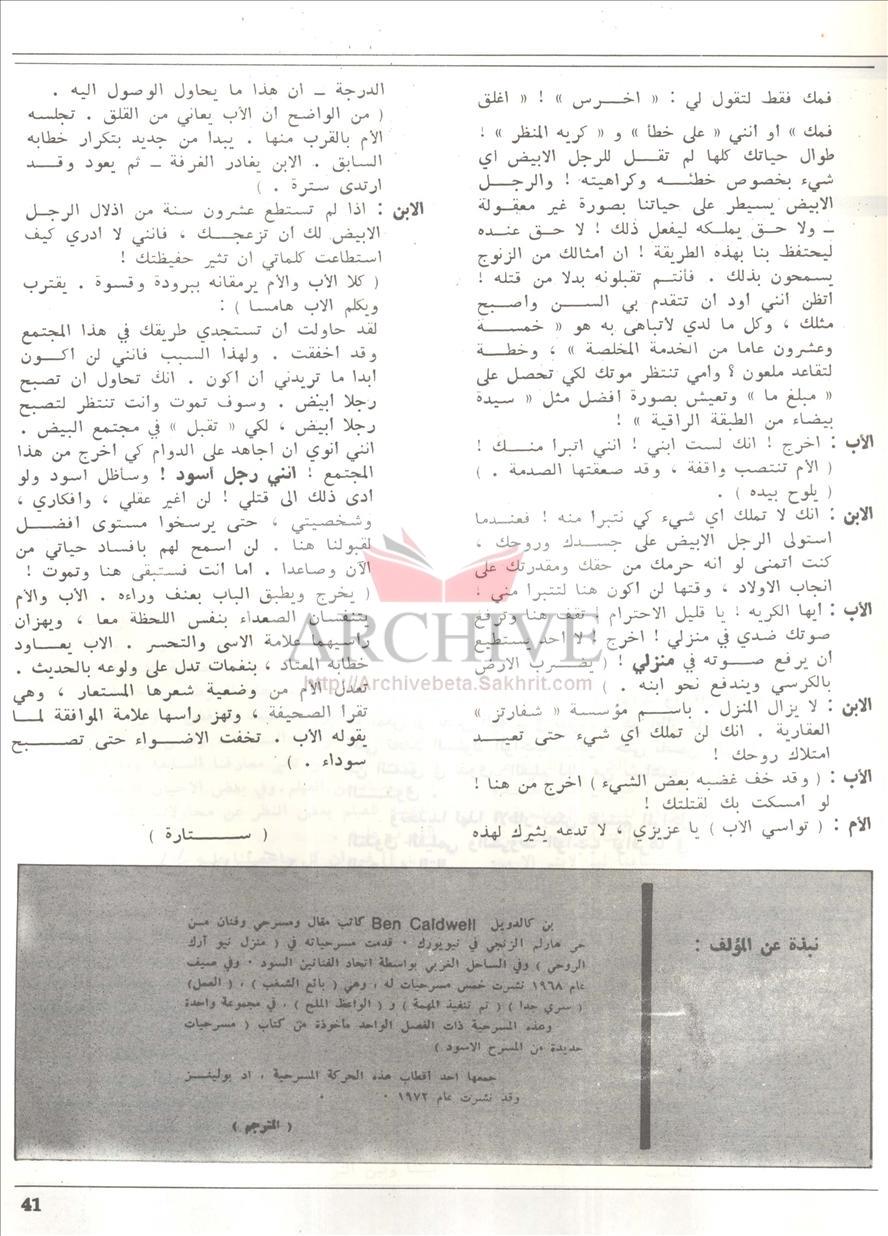 فمك فقط لتقول لي : « اخـــرس » ! « اغلق
فمك » او انني « على خطأ » و « كريه المنظر » !
طوال حياتك كلها لم تقـــل للرجل الابيض اي
شيء بخصوص خطئـــه وكراهيته ! والرجـــل
الابيض يسيطر على حياتنا بصورة غير معقـولة
ـ ولا حـق يملكـه ليفعل ذلك ! لا حـق عنـده
ليحتفظ بنا بهذه الطريقة ! ان امثالك من الزنوج
يسمحون بذلك . فأنتـم تقبلونه بدلا من قتله !
اتظن انني اود ان تتقدم بي الســـن واصبح
مثلك ، وكل ما لدي لاتباهى به هو « خمســـة
وعشرون عاما من الخدمة المخلصة » ، وخطـــة
لتقاعد ملعون ؟ وامي تنتظر موتك لكي تحصل على
« مبلغ ما » وتعيش بصورة افضل مثل « سيدة
بيضاء من الطبقة الراقية » !
الأب : اخرج ! انك لست ابني ! انني اتبرا منـــك !
( الأم تنتصب واقفة ، وقد صعقتها الصدمة . )
( يلوح بيده ) .
الابن : انك لا تملك اي شيء كي نتبرا منه ! فعنـدما
استولى الرجل الابيض على جسـدك وروحك ،
كنت اتمنى لو انه حرمك من حقك ومقدرتك على
انجاب الاولاد ، وقتها لن اكون هنا لتتبرا مني !
الأب : ايها الكريه ! يا قليل الاحترام ! تقف هنا وترفع
صوتك ضدي في منزلي ! اخرج ! لا احد يستطيع
ان يرفع صـــوته في منزلي ! ( يضـــرب الارض
بالكرسي ويندفع نحو ابنه . )
الابن : لا يزال المنزل . باســم مؤسسة « شفارتز »
العقارية . انك لن تملك اي شيء حتى تعيـــد
امتلاك روحك !
الأب : ( وقد خف غضبه بعض الشيء ) اخرج من هنا !
لو امسكت بك لقتلتك !
الأم : ( تواسي الأب ) يا عزيزي ، لا تدعه يثيرك لهذه
الدرجة ـ ان هذا ما يحاول الوصول اليه .
( من الواضح ان الأب يعاني من القلق . تجلسه
الأم بالقرب منها . يبدا من جديد بتكرار خطابه
السابق . الابن يغادر الغرفة ـ ثم يعود وقـــد
ارتدى سترة . )
الابن : اذا لم تستطع عشرون سنة من اذلال الرجـل
الابيض لك ان تزعجـــك ، فانني لا ادري كيف
استطاعت كلماتي ان تثير حفيظتك !
( كلا الأب والأم يرمقانه ببرودة وقسوة . يقترب
ويكلم الأب هامسا ) :
لقد حاولت ان تستجدي طريقك في هذا المجتمع
وقد اخفقت . ولهذا السبب فانني لن اكـــون
ابدا ما تريدني ان اكون . انك تحاول ان تصبح
رجلا ابيض . وسوف تموت وانت تنتظر لتصبح
رجلا ابيض ، لكي « تقبل » في مجتمع البيض .
انني انوي ان اجاهد على الدوام كي اخرج من هذا
المجتمع ! انني رجل اسود ! وسأظل اسود ولو
ادى ذلك الى قتلي ! لن اغير عقلي ، وافكاري ،
وشخصيتي ، حتى يرسخوا مستوى افضـــل
لقبولنا هنا . لن اسمح لهم بافساد حياتي من
الآن وصاعدا . اما انت فستبقى هنا وتموت !
( يخرج ويطبق الباب بعنف وراءه . الأب والأم
يتنفسان الصعداء بنفس اللحظة معا ، ويهزان
راسيهما علامة الاسى والتحسر . الأب يعـــاود
خطابه المعتاد ، بنغمات تدل على ولوعه بالحديث .
تعدل الأم من وضعية شعرها المستعار ، وهي
تقرا الصحيفة ، وتهز راسها علامة الموافقة لمـــا
يقوله الأب . تخفت الاضـــواء حتى تصـــبح
سوداء . )
( ســـتارة )
ARCHIVE
http://Archivebeta.Sakhrit.com
نبذة عن المؤلف :
بن كالدويل Ben Caldwell كاتب مقال ومسرحي وفنان مـــن
حي هارلم الزنجي في نيويورك . قدمت مسرحياته في ( منزل نيو آرك
الروحي ) وفي الساحل الغربي بواسطة اتحاد الفنانين السود . وفي صيف
عام ١٩٦٨ نشرت خمس مسرحيات له ، وهي ( بائع الشعب ) ، ( العمل )
( سري جدا ) ( تم تنفيذ المهمة ) و ( الواعظ الملح ) ، في مجموعة واحدة
وهذه المسرحية ذات الفصل الواحد مأخوذة من كتاب ( مسرحيات
جديدة من المسرح الاسود )
جمعها احد اقطاب هذه الحركة المسرحية ، اد بولينـــز
وقد نشرت عام ١٩٧٢ .
( المترجم )
41